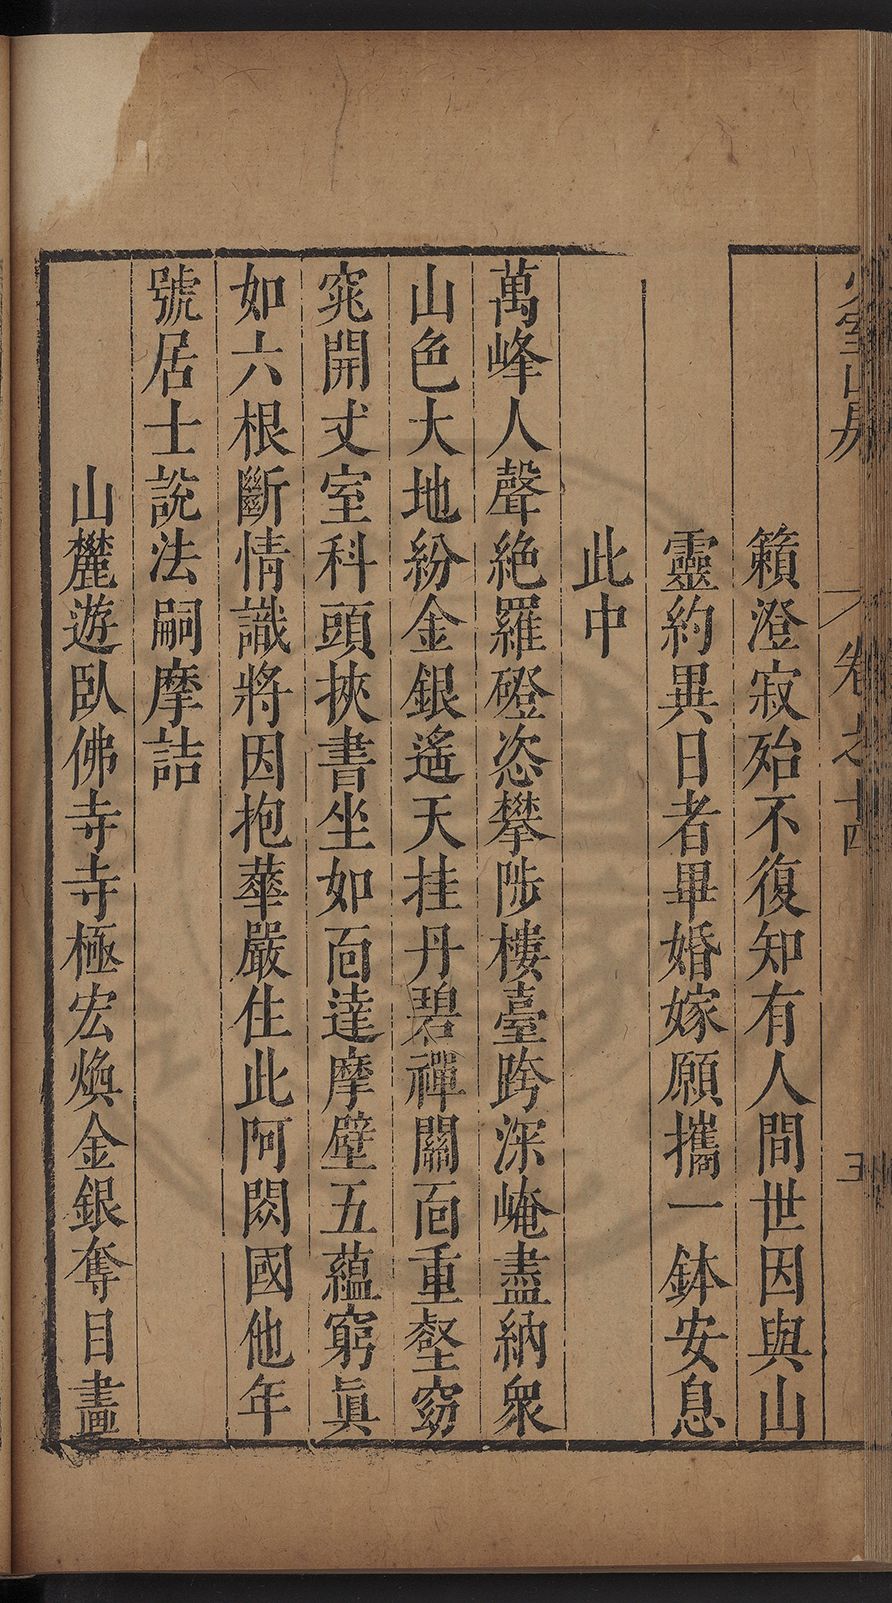 少室山房
卷之十四
三
籟澄寂殆不復知有人間世因與山
靈約異日者畢婚嫁願攜一鉢安息
此中
萬峰人聲絕羅磴恣攀陟樓臺跨深崦盡納衆
山色大地紛金銀遙天挂丹碧禪關面重壑窈
窕開丈室科頭挾書坐如面達摩壁五蘊窮眞
如六根斷情識將因抱華嚴住此阿閦國他年
號居士說法嗣摩詰
山麓遊臥佛寺寺極宏煥金銀奪目畫